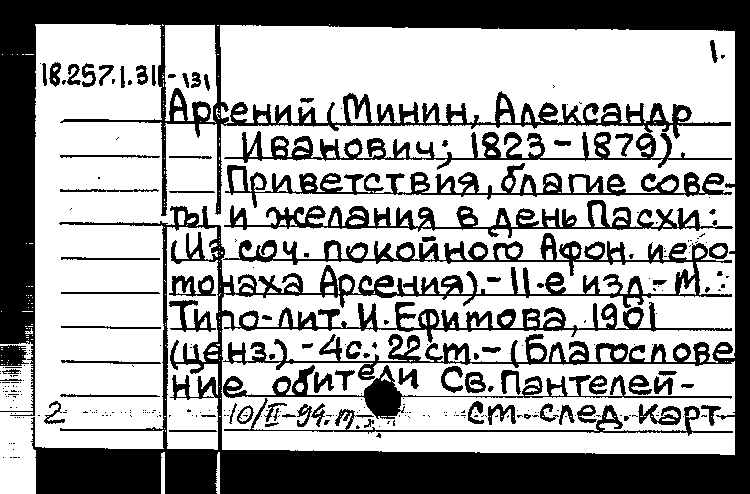 1.
18.257.1.311-131
Арсений (Минин, Александр
Иванович; 1823-1879).
Приветствия, благие сове-
ты и желания в день Пасхи:
(Из соч. покойного Афон. иеро-
монаха Арсения).- 11-е изд.- М.:
Типо-лит. И. Ефимова, 1901
(ценз.).- 4с.; 22 см.- (Благослове
ние обители Св. Пантелей-
2 10/II-94. т. см. след. карт